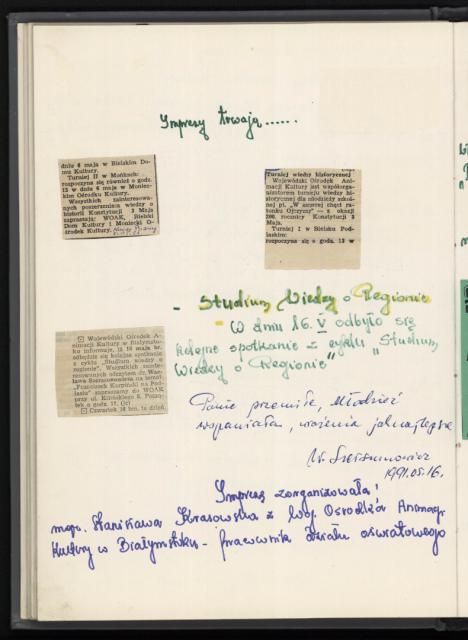 Imprezy trwają......
dniu 6 maja w Bielskim Do-
mu Kultury.
Turniej II w Mońkach:
rozpoczyna się również o godz.
13 w dniu 6 maja w Moniec-
kim Ośrodku Kultury.
Wszystkich zainteresowa-
nych poszerzeniem wiedzy o
historii Konstytucji 3 Maja
zapraszają: WOAK, Bielski
Dom Kultury i Moniecki O-
środek Kultury.
Turniej wiedzy historycznej
Wojewódzki Ośrodek Ani-
macji Kultury jest współorga-
nizatorem turnieju wiedzy hi-
storycznej dla młodzieży szkol-
nej pt. „W szczerej chęci ra-
tunku Ojczyzny" — z okazji
200. rocznicy Konstytucji 3
Maja.
Turniej I w Bielsku Pod-
laskim:
rozpoczyna się o godz. 13 w
- Studium Wiedzy o Regionie
- W dniu 16. V odbyło się
kolejne spotkanie z cyklu "Studium
Wiedzy o Regionie"
Wojewódzki Ośrodek A-
nimacji Kultury w Białymsto-
ku informuje, iż 16 maja br.
odbędzie się kolejne spotkanie
z cyklu „Studium wiedzy o
regionie". Wszystkich zainte-
resowanych odczytem dr. Wac-
ława
na temat:
„Franciszek Karpiński na Pod-
lasiu" zapraszamy do WOAK
przy ul. Kilińskiego 8. Począ-
tek o godz. 17.
Czwartek 16 bm. to dzień
Panie przemiłe, Młodzież
wspaniała, wrażenia jak najlepsze
1991.05.16.
Imprezę zorganizowała!
mgr. Stanisława Krasowska z Woj. Ośrodka Animacji
Kultury w Białymstoku - pracownik działu oświatowego